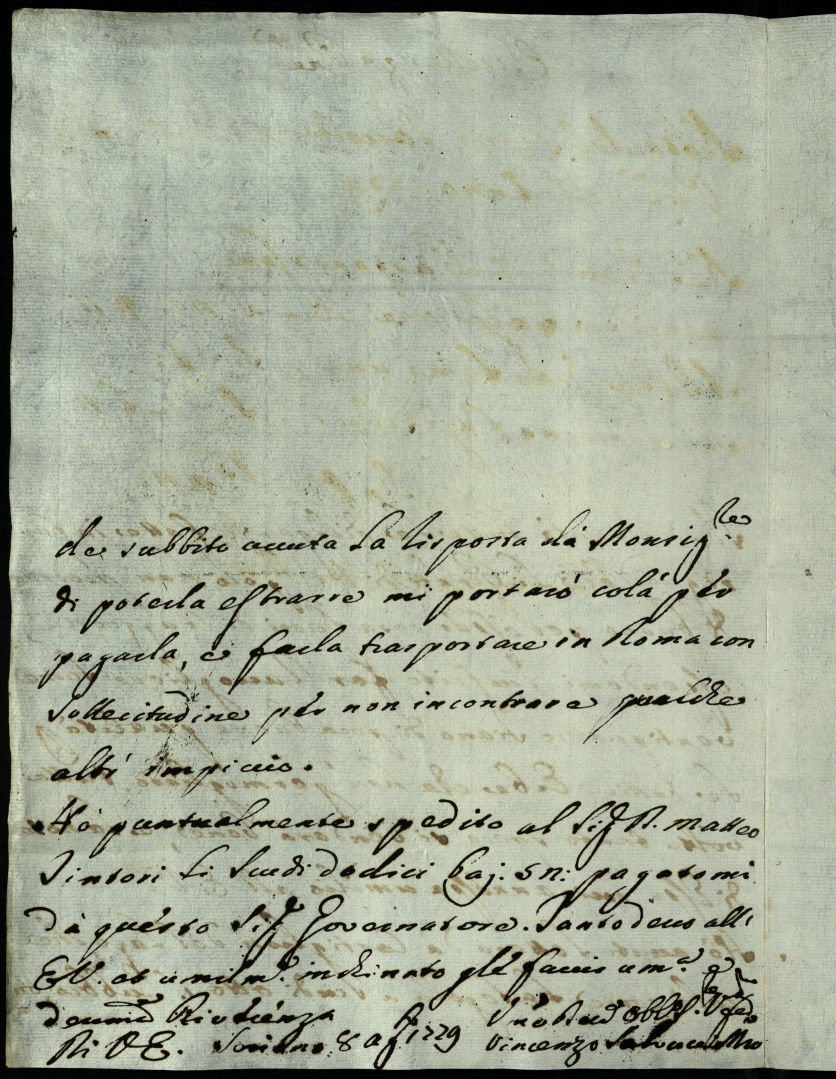 de subbito auuta la risposta dà Monsig.re
di poterla estrarre mi portarò colà per
pagarla, e farla trasportare in Roma con
sollecitudine per non incontrare qualche
altr' impiccio.
Hò puntualmente spedito al Sig.r D. Matteo
Tintori li scudi dodici baj: 52: pagatomi
dà questo Sig.r Governatore. Tanto devo all'
E.V. et umilm.e inchinato gle faccio um.a e
Riverenza
Di V.E. Soriano 8 ag. 1779
Vincenzo